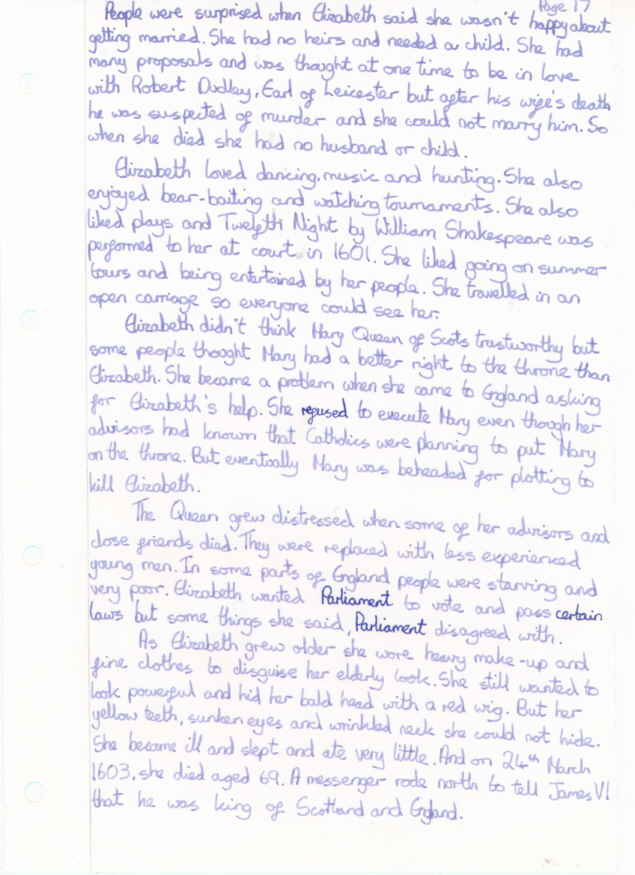 Page 17
People were surprised when Elizabeth said she wasn't happy about
getting married. She had no heirs and needed a child. She had
many proposals and was thought at one time to be in love
with Robert Dudley, Earl of Leicester but after his wife's death
he was suspected of murder and she could not marry him. So
when she died she had no husband or child.
Elizabeth loved dancing, music and hunting. She also
enjoyed bear-baiting and watching tournaments. She also
liked plays and Twelfth Night by William Shakespeare was
performed to her at court in 1601. She liked going on summer
tours and being entertained by her people. She travelled in an
open carriage so everyone could see her.
Elizabeth didn't think Mary Queen of Scots trustworthy but
some people thought Mary had a better right to the throne than
Elizabeth. She became a problem when she came to England asking
for Elizabeth's help. She refused to execute Mary even though her
advisors had known that Catholics were planning to put Mary
on the throne. But eventually Mary was beheaded for plotting to
kill Elizabeth.
The Queen grew distressed when some of her advisors and
close friends died. They were replaced with less experienced
young men. In some parts of England people were starving and
very poor. Elizabeth wanted Parliament to vote and pass certain
laws but some things she said, Parliament disagreed with.
As Elizabeth grew older she wore heavy make-up and
fine clothes to disguise her elderly look. She still wanted to
look powerful and hid her bald head with a red wig. But her
yellow teeth, sunken eyes and wrinkled neck she could not hide.
She became ill and slept and ate very little. And on 24th March
1603, she died aged 69. A messenger rode north to tell James VI
that he was king of Scotland and England.